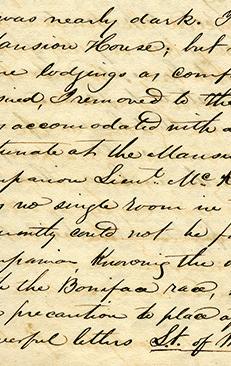 was nearly dark.
Mansion House; but
lodgings as comf
I removed to the
accomodated with a
tunate at the Mans
panion Lieut. Mc
no single room in
uently could not be
panion, Knowing the
the Boniface race,
precaution to place a
erful letters St. of